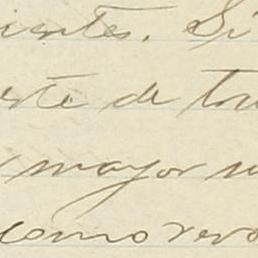 ientes. Si
rte de tod
y mayor
como revo